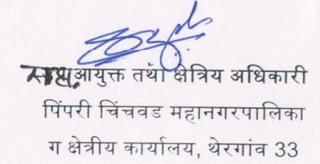 सहा. आयुक्त तथा क्षेत्रिय अधिकारी
पिंपरी चिंचवड महानगरपालिका
ग क्षेत्रीय कार्यालय, थेरगांव 33